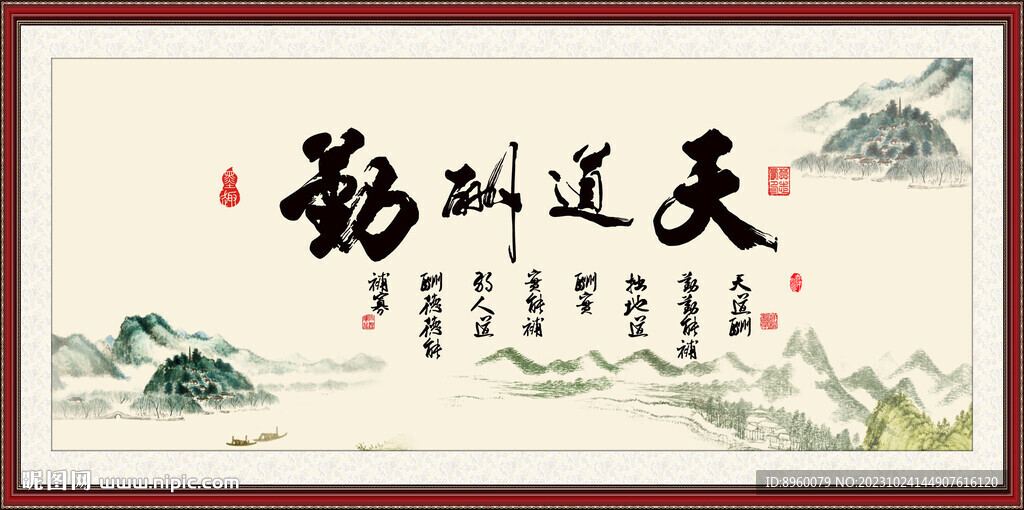 天道酬勤
天道酬
勤勤能補
拙地道
酬實
實能補
弱人道
酬德德能
補寡
墨趣
昵图网 www.nipic.com
ID:8960079 NO:20231024144907616120